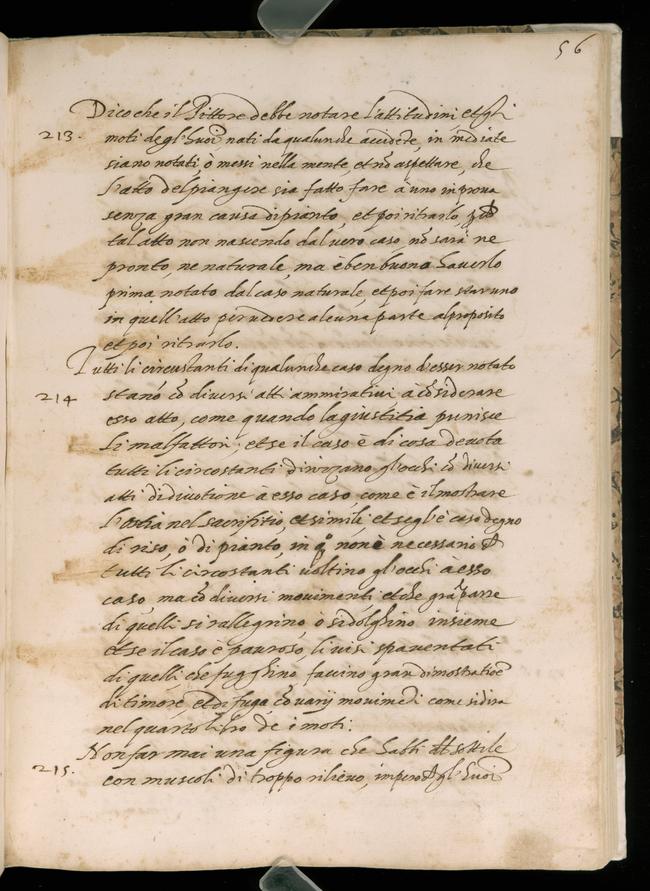 56
Dico che il Pittore debbe notare l'attitudini et gli
213. moti degl'huoī nati da qualunche accidēte, in mediate
siano notati, ò messi nella mente, et nō aspettare, che
l'atto del piangere sia fatto fare à uno in prova
senza gran causa di pianto, et poi ritrarlo,
tal atto non nascendo dal vero caso, nō sarà ne
pronto, ne naturale, ma è ben buono haverlo
prima notato dal caso naturale, et poi fare star uno
in quell'atto per vedere alcuna parte al proposito
et poi ritrarlo.
Tutti li circustanti di qualunche caso degno d'esser notato
214 stanō cō diversi atti ammirativi à cōsiderare
esso atto, come quando la giustitia punisce
li malfattori; et se il caso è di cosa devota
tutti li circostanti dirizzano gl'occhi cō diversi
atti di divotione a esso caso, come è il mostrare
l'ostia nel sacrifitio, et simili, et se gl'è caso degno
di riso, ò di pianto, in non è necessario
tutti li circostanti voltino gl'occhi à esso
caso, ma cō diversi movimenti et che grā parte
di quelli si rallegrino, ò si dolghino insieme
et se il caso è pauroso, li visi spaventati
di quelli, che fugghino, faccino gran dimostratioē
di timore, et di fuga, cō varij movimēti come si dira
nel quarto libro de i moti:
Non far mai una figura che habbi del sottile
215. con muscoli di troppo rilievo, impero gl'huoī